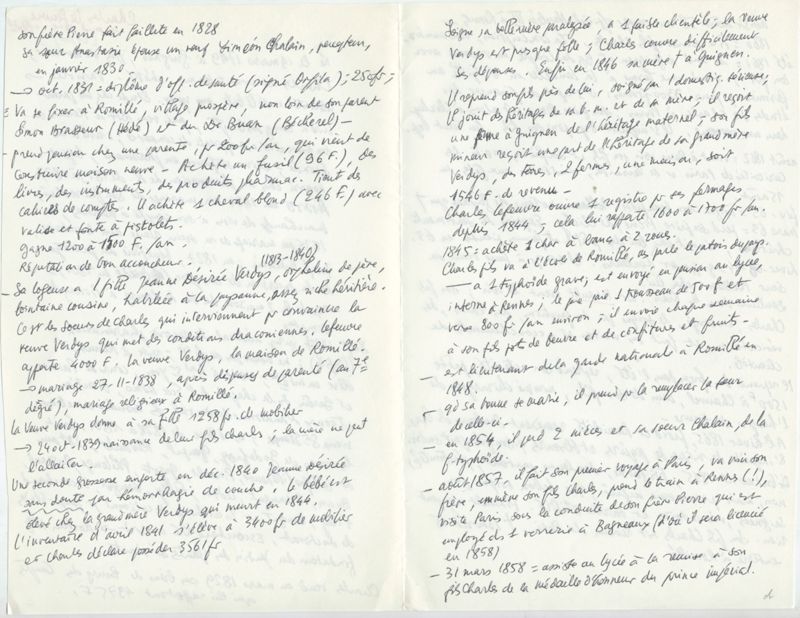 son frère Pierre fait faillite en 1828
Sa sœur Anastasie épouse un veuf Siméon Chalain, percepteur,
en janvier 1830.
→ oct. 1831 = diplôme d'off. de santé (signé Orfila) ; 250 fr ;
Va se fixer à Romillé, village prospère, non loin de son parent
Simon Brasseur (Hédé) et du Dr Buan (Bécherel) –
- prend pension chez une parente, pr 200 fr/an, qui vient de
construire maison neuve – Achète un fusil (96 F.), des
livres, des instruments, des produits pharmac. Tient des
cahiers de comptes. Il achète 1 cheval blond (246 F.) avec
valise et fonte à pistolet.
Gagne 1200 à 1500 F. /an.
Réputation de bon accoucheur.
(1813-1840)
- Sa logeuse a 1 fille Jeanne Désirée Verdys, orpheline de père,
lointaine cousine, habillée à la paysanne, assez riche héritière.
Ce st les sœurs de Charles qui interviennent pr convaincre la
veuve Verdys qui met des conditions draconiennes. Lefeuvre
apporte 4000 F., la veuve Verdys, la maison de Romillé.
→ mariage 27-11-1838, après dispenses de parenté (au 7e
degré), mariage religieux à Romillé.
La Veuve Verdys donne à sa fille 1258 fr. de mobilier
→ 24 oct. 1839 naissance de leur fils Charles ; la mère ne peut
l'allaiter.
Une seconde grossesse emporte en déc. 1840 Jeanne Désirée
sans doute par hémorragie de couche. Le bébé est
élevé chez la grand mère Verdys qui meurt en 1844.
L'inventaire d'avril 1841 s'élève à 3400 fr de mobilier
et Charles déclare posséder 3561 fr
Soigne sa belle mère paralysée, a 1 faible clientèle ; la veuve
Verdys est presque folle ; Charles couvre difficilement
ses dépenses. Enfin en 1846 sa mère † à Guignen.
Il reprend son fils près de lui, soigné par 1 domestiq. sérieuse,
Il jouit des héritages de sa b. m. et de sa mère ; il reçoit
une ferme à Guignen de l'héritage maternel ; son fils
mineur reçoit une part de l'héritage de sa grand mère
Verdys, des terres, 2 fermes, une maison, soit
1546 F. de revenu –
Charles Lefeuvre ouvre 1 registre pr ses fermages
depuis 1844 ; cela lui rapporte 1600 à 1700 fr/an.
1845 : achète 1 char à bancs à 2 roues.
Charles fils va à l'école de Romillé, où parle le patois du pays.
— a 1 typhoïde grave ; est envoyé en pension au lycée,
interne à Rennes ; le père paie 1 trousseau de 500 f et
verse 800 fr /an environ ; il envoie chaque semaine
à son fils pots de beurre et de confitures et fruits –
- est lieutenant de la garde nationale à Romillé en
1848.
- qd sa bonne se marie, il prend pr la remplacer la sœur
de celle-ci.
- en 1854, il perd 2 nièces et sa sœur Chalain, de la
f. typhoïde.
- août 1857, il fait son premier voyage à Paris, va voir son
frère, emmène son fils Charles, prend le train à Rennes (!),
visite Paris sous la conduite de son frère Pierre qui est
employé ds 1 verrerie à Bagneaux (d'où il sera licencié
en 1858)
- 31 mars 1858 = assiste au lycée à la remise à son
fils Charles de la médaille d'honneur du prince impérial.